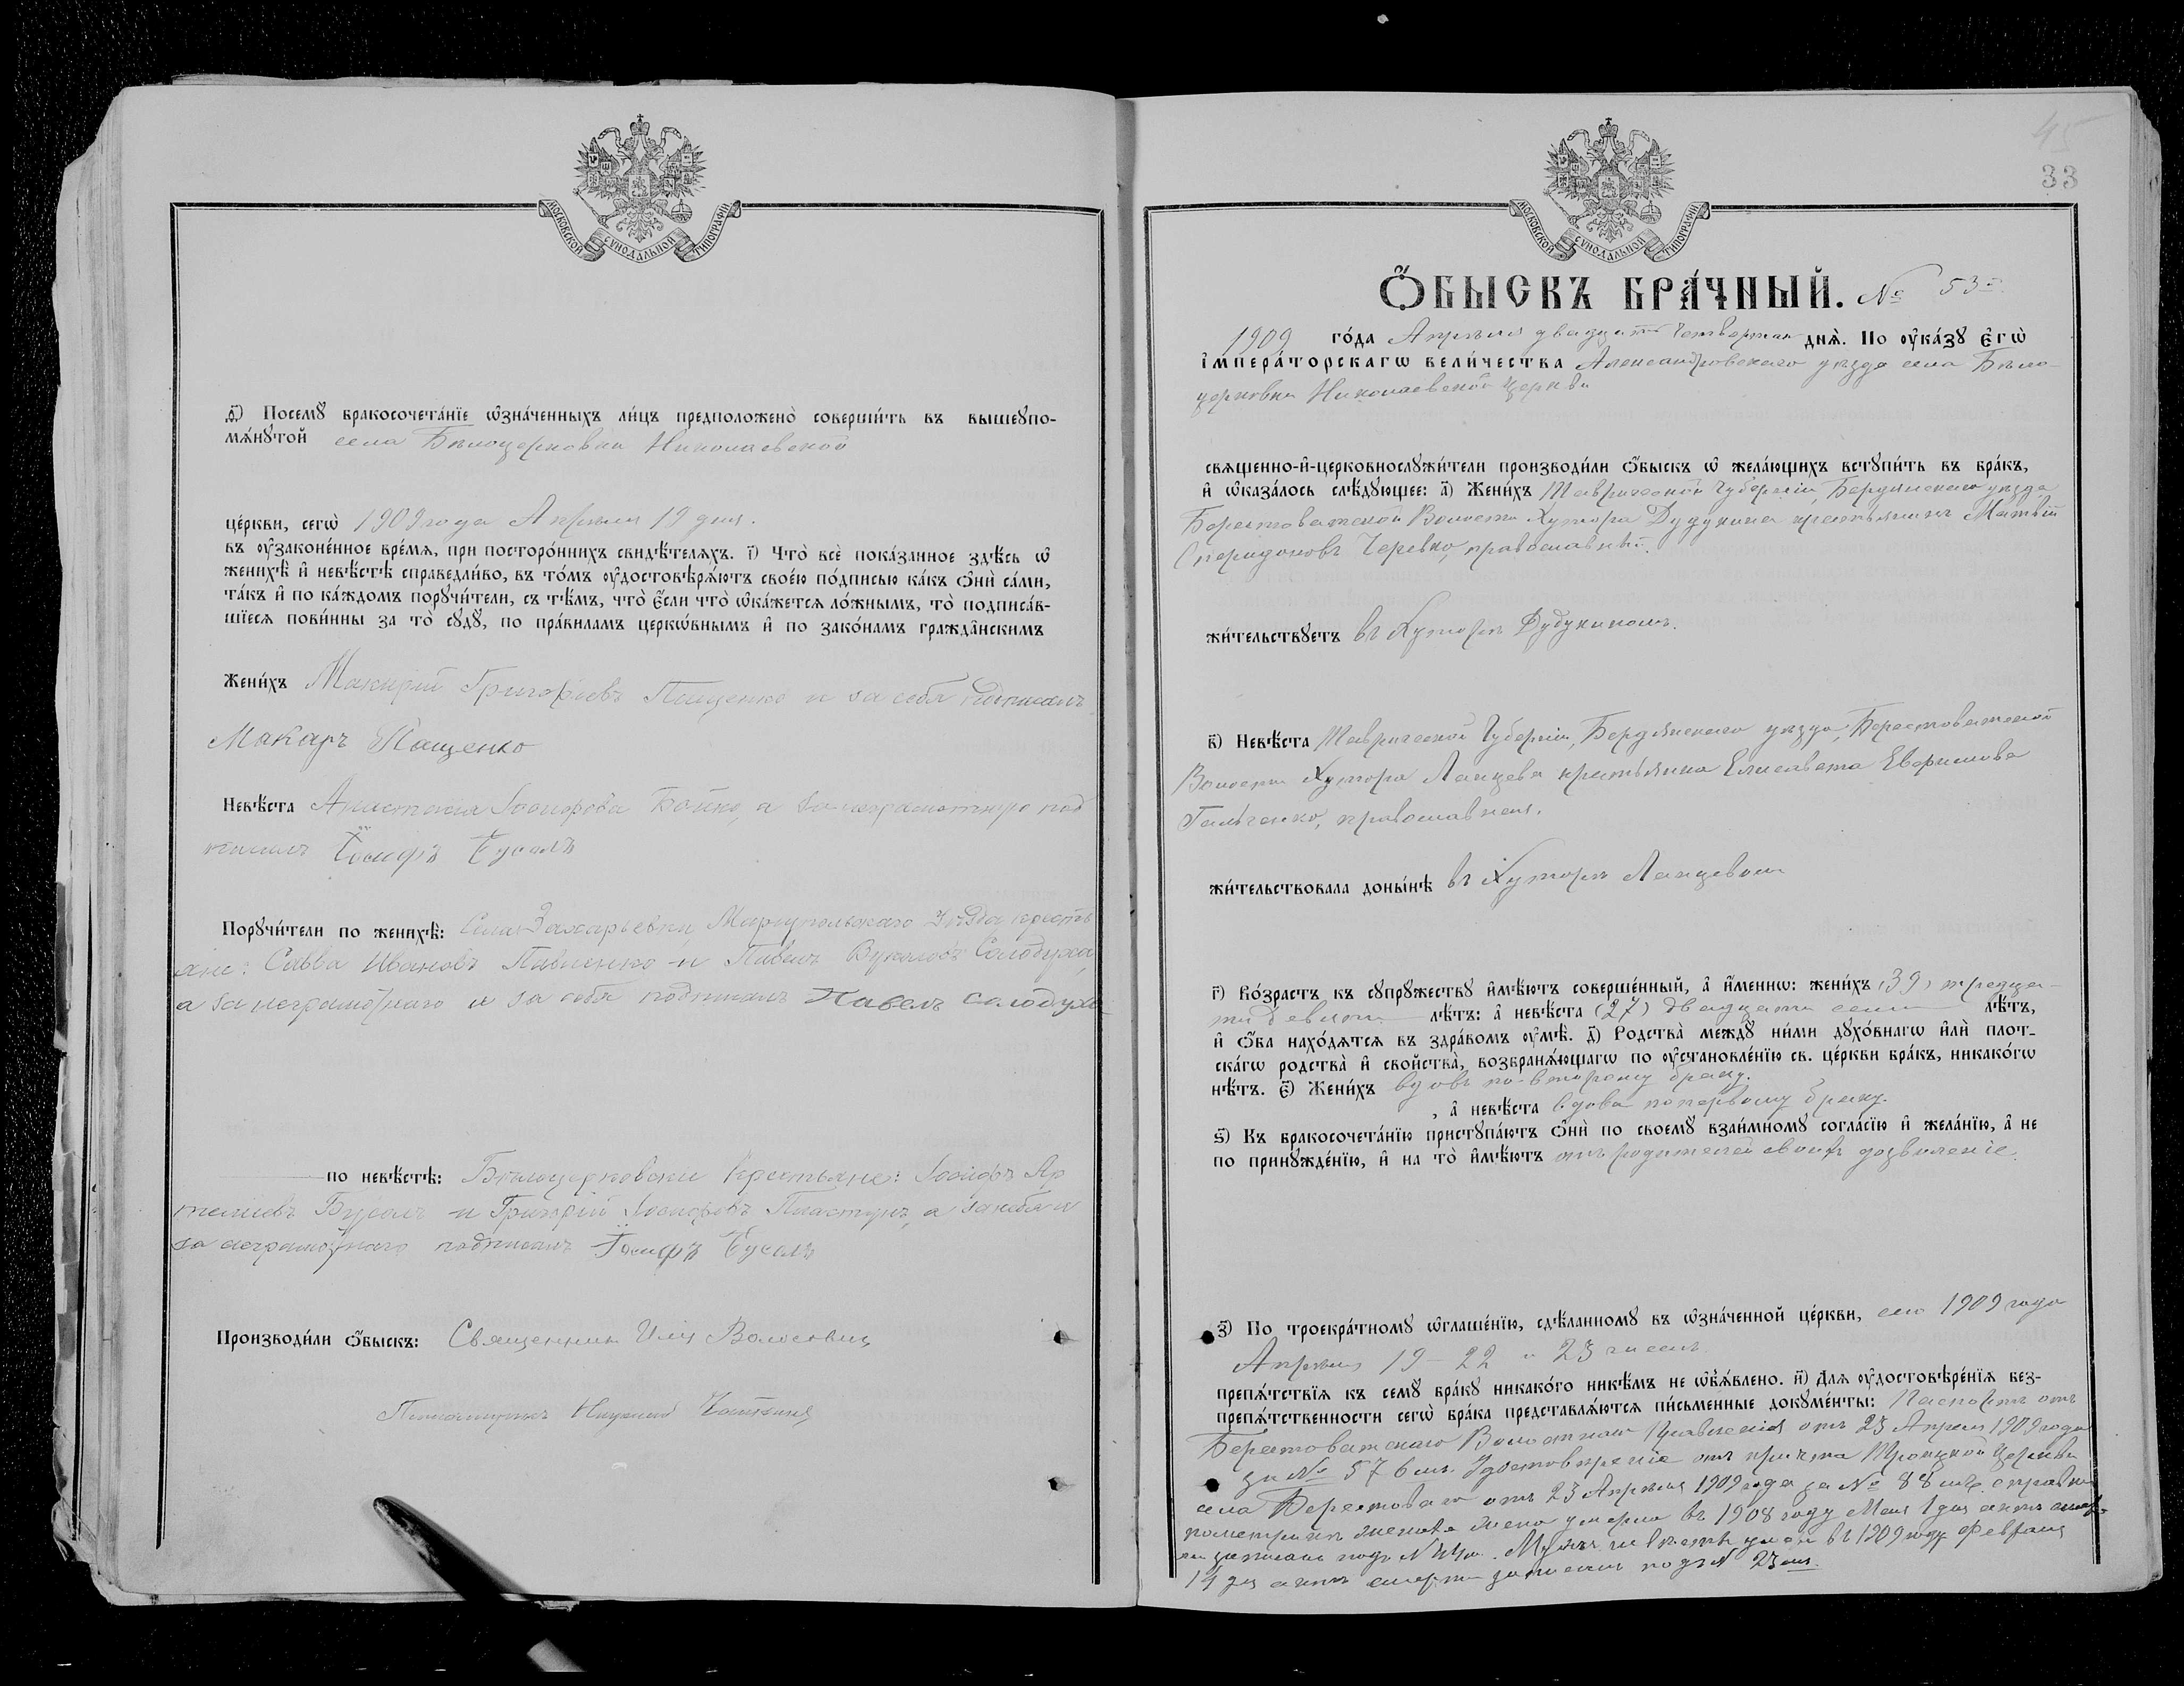 МОСКОВСКОЙ СѴНОДАЛЬНОЙ ТИПОГРАФІИ
д҃) Посемꙋ̀ бракосочета́нїе ѡ҆зна́ченныхъ ли́цъ предположено̀ соверши́ть въ вышеꙋпо-
мѧ́нꙋтой села Бѣлоцерковки Николаевской
це́ркви, сегѡ̀ 1909 года Апрѣля 19 дня.
въ ᲂу҆законе́нное вре́мѧ, при посторо́ннихъ свидѣ́телѧхъ. і҃) Что̀ всѐ пока́занное здѣ́сь ѡ҆
женихѣ̀ и҆ невѣ́стѣ справедли́во, въ то́мъ ᲂу҆достовѣрѧ́ютъ свое́ю по́дписью ка́къ ѻ҆нѝ са́ми,
та́къ и҆ по ка́ждомъ порꙋчи́тели, съ тѣ́мъ, что̀ є҆́сли что̀ ѡ҆ка́жетсѧ ло́жнымъ, то̀ подписа́в-
шїесѧ пови́нны за то̀ сꙋдꙋ̀, по пра́виламъ церкѡ́внымъ и҆ по зако́намъ гражда̑нскимъ
Жени́хъ Макарій Григоріевъ Пащенко и за себя подписалъ
Макаръ Пащенко
Невѣ́ста Анастасія Іосифова Бойко, а за неграмотную под
писалъ Іосифъ Бусалъ
Порꙋчи́тели по женихѣ̀: Села Захарьевки Маріупольскаго Уѣзда крестья
яне: Савва Ивановъ Павленко и Павелъ Солодуха,
а за неграмотнаго и за себя подписалъ Павелъ Солодуха
по невѣ́стѣ: Бѣлоцерковски Крестьяне: Іосифъ Ар
темievъ Бусалъ и Григорій Іосифовъ Пластунъ, а за себя и
за неграмотнаго подписалъ Іосифъ Бусалъ
Производи́ли ѻ҆́быскъ: Священникъ Илія Волосевич
Псаломщикъ
45
33
МОСКОВСКОЙ СѴНОДАЛЬНОЙ ТИПОГРАФІИ
Ѻ҆́БЫСКЪ БРА́ЧНЫЙ. № 53й.
1909 го́да Апрѣля двадцать четвертаго днѧ̀. По ᲂу҆ка́зꙋ є҆гѡ̀
і҆мпера́торскагѡ вели́чества Александровскаго уѣзда села Бѣло-
церковки Николаевской церкви
свѧще́нно-и҆-церковнослꙋжи́тели производи́ли ѻ҆́быскъ ѡ҆ жела́ющихъ встꙋпи́ть въ бра́къ,
и҆ ѡ҆каза́лось слѣ́дꙋющее: а҃) Жени́хъ Таврической Губерніи, Бердянскаго уѣзда
Берестоватской Волости Хутора Дудукина крестьянинъ Матвій
Спиридоновъ Черевко, православный.
жи́тельствꙋетъ въ Хуторѣ Дудукиномъ.
в҃) Невѣ́ста Таврической Губерніи, Бердянскаго уѣзда, Берестоватской
Волости Хутора Ланцева крестьянка Елисавета Евфимова
Гальченко, православная.
жи́тельствовала доны́нѣ въ Хуторѣ Ланцевом
г҃) Во́зрастъ къ сꙋпрꙋ́жествꙋ и҆мѣ́ютъ соверше́нный, а҆ и҆́менно: жени́хъ (39) тридца-
ти девяти лѣ́тъ: а҆ невѣ́ста (27) двадцати семи лѣ́тъ,
и҆ ѻ҆́ба нахо́дѧтсѧ въ здра́вомъ ᲂу҆мѣ̀. д҃) Родства̀ междꙋ̀ ни́ми дꙋхо́внагѡ и҆лѝ плот-
ска́гѡ родства̀ и҆ сво́йства, возбранѧ́ющагѡ по ᲂу҆становле́нїю св. це́ркви бра́къ, никако́гѡ
нѣ́тъ. є҃) Жени́хъ вдовъ по второму браку.
, а҆ невѣ́ста вдова по первому браку.
ѕ҃) Къ бракосочета́нїю пристꙋпа́ютъ ѻ҆нѝ по своемꙋ̀ взаи́мномꙋ согла́сїю и҆ жела́нїю, а҆ не
по принꙋжде́нїю, и҆ на то̀ и҆мѣ́ютъ отъ родителей своихъ дозволеніе.
з҃) По троекра́тномꙋ ѡ҆глаше́нїю, сдѣ́ланномꙋ въ ѡ҆зна́ченной це́ркви, сего 1909 года
Апрѣля 19 – 22 и 23 чиселъ
препѧ́тствїѧ къ семꙋ̀ бра́кꙋ никако́го никѣ́мъ не ѡ҆б̾ѧ́влено. и҃) Длѧ ᲂу҆достовѣре́нїѧ без-
препѧ́тственности сегѡ̀ бра́ка представлѧ́ютсѧ пи́сьменные докꙋме́нты: Паспортъ отъ
Берестоватскаго Волостнаго Правленія отъ 23 Апрѣля 1909 года
за № 576мъ. Удостовѣреніе отъ причта Троицкой Церкви
села Берестоваго отъ 23 Апрѣля 1909 года за № 88мъ справка
по метрикѣ жениха жена умерла въ 1908 году Мая 1 дня актъ смер-
ти записанъ подъ № 44м. Мужъ невѣсты умеръ въ 1909 году Февраля
14 дня актъ смерти записанъ подъ № 23мъ.